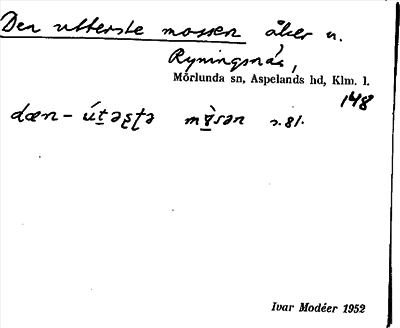 Den utterste mossen åker u.
Ryningsnäs,
Mörlunda sn, Aspelands hd, Klm. l.
148
dæn - út̠əʂʈə mɤ̠̀sən s. 81.
Ivar Modéer 1952